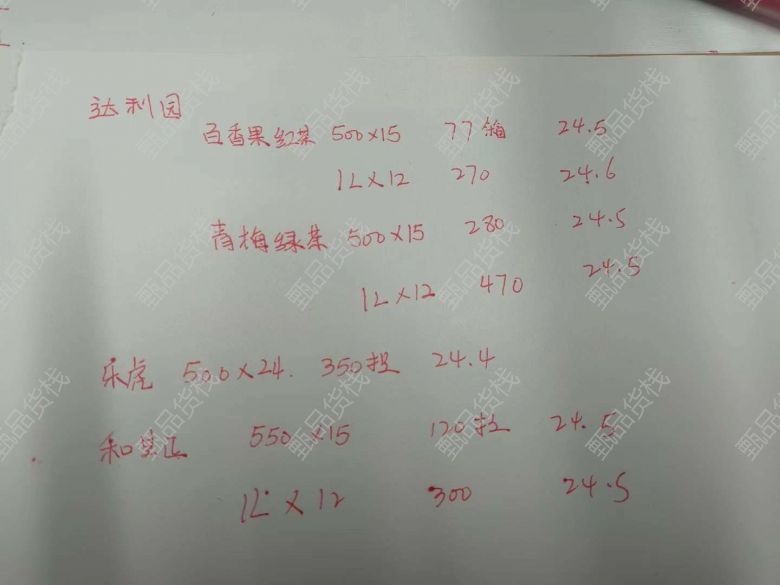 达利园
百香果红茶 500×15 77箱 24.5
1L×12 270 24.6
青梅绿茶 500×15 280 24.5
1L×12 470 24.5
乐虎 500×24. 350 24.4
和其正 550×15 120 24.5
1L×12 300 24.5
甄品货栈